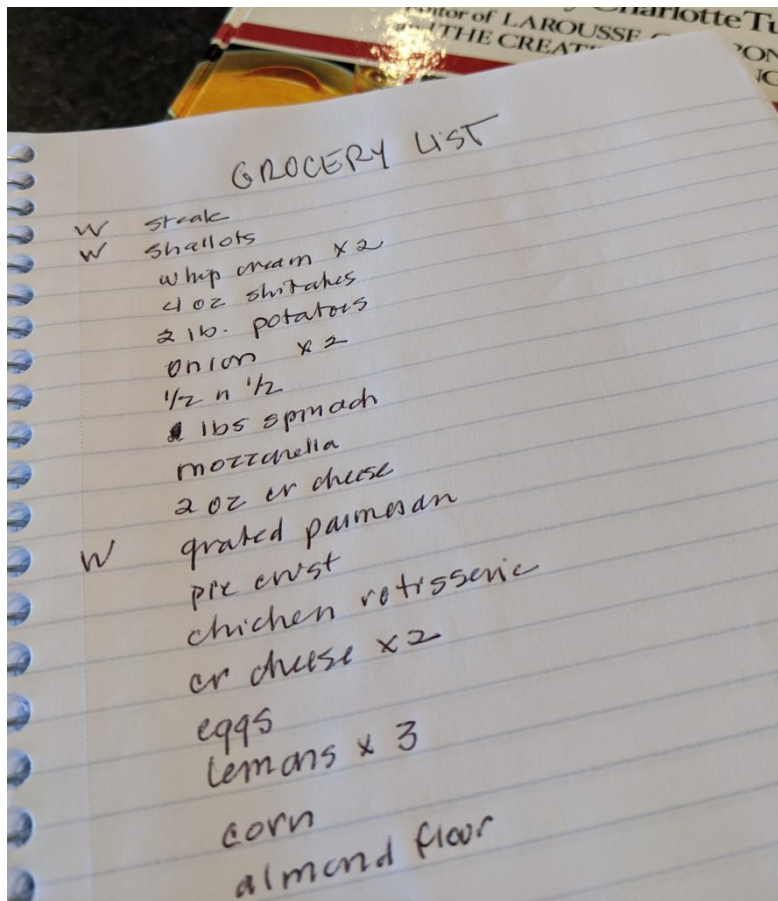 Charlotte Tu
itor of LAROUSSE
and THE CREATI
GROCERY LIST
W steak
W shallots
whip cream x 2
4 oz shitakes
2 lb. potatoes
onion x 2
1/2 n 1/2
lbs spinach
mozzarella
2 oz cr cheese
W grated parmesan
pie crust
chicken rotisserie
cr cheese x 2
eggs
lemons x 3
corn
almond flour